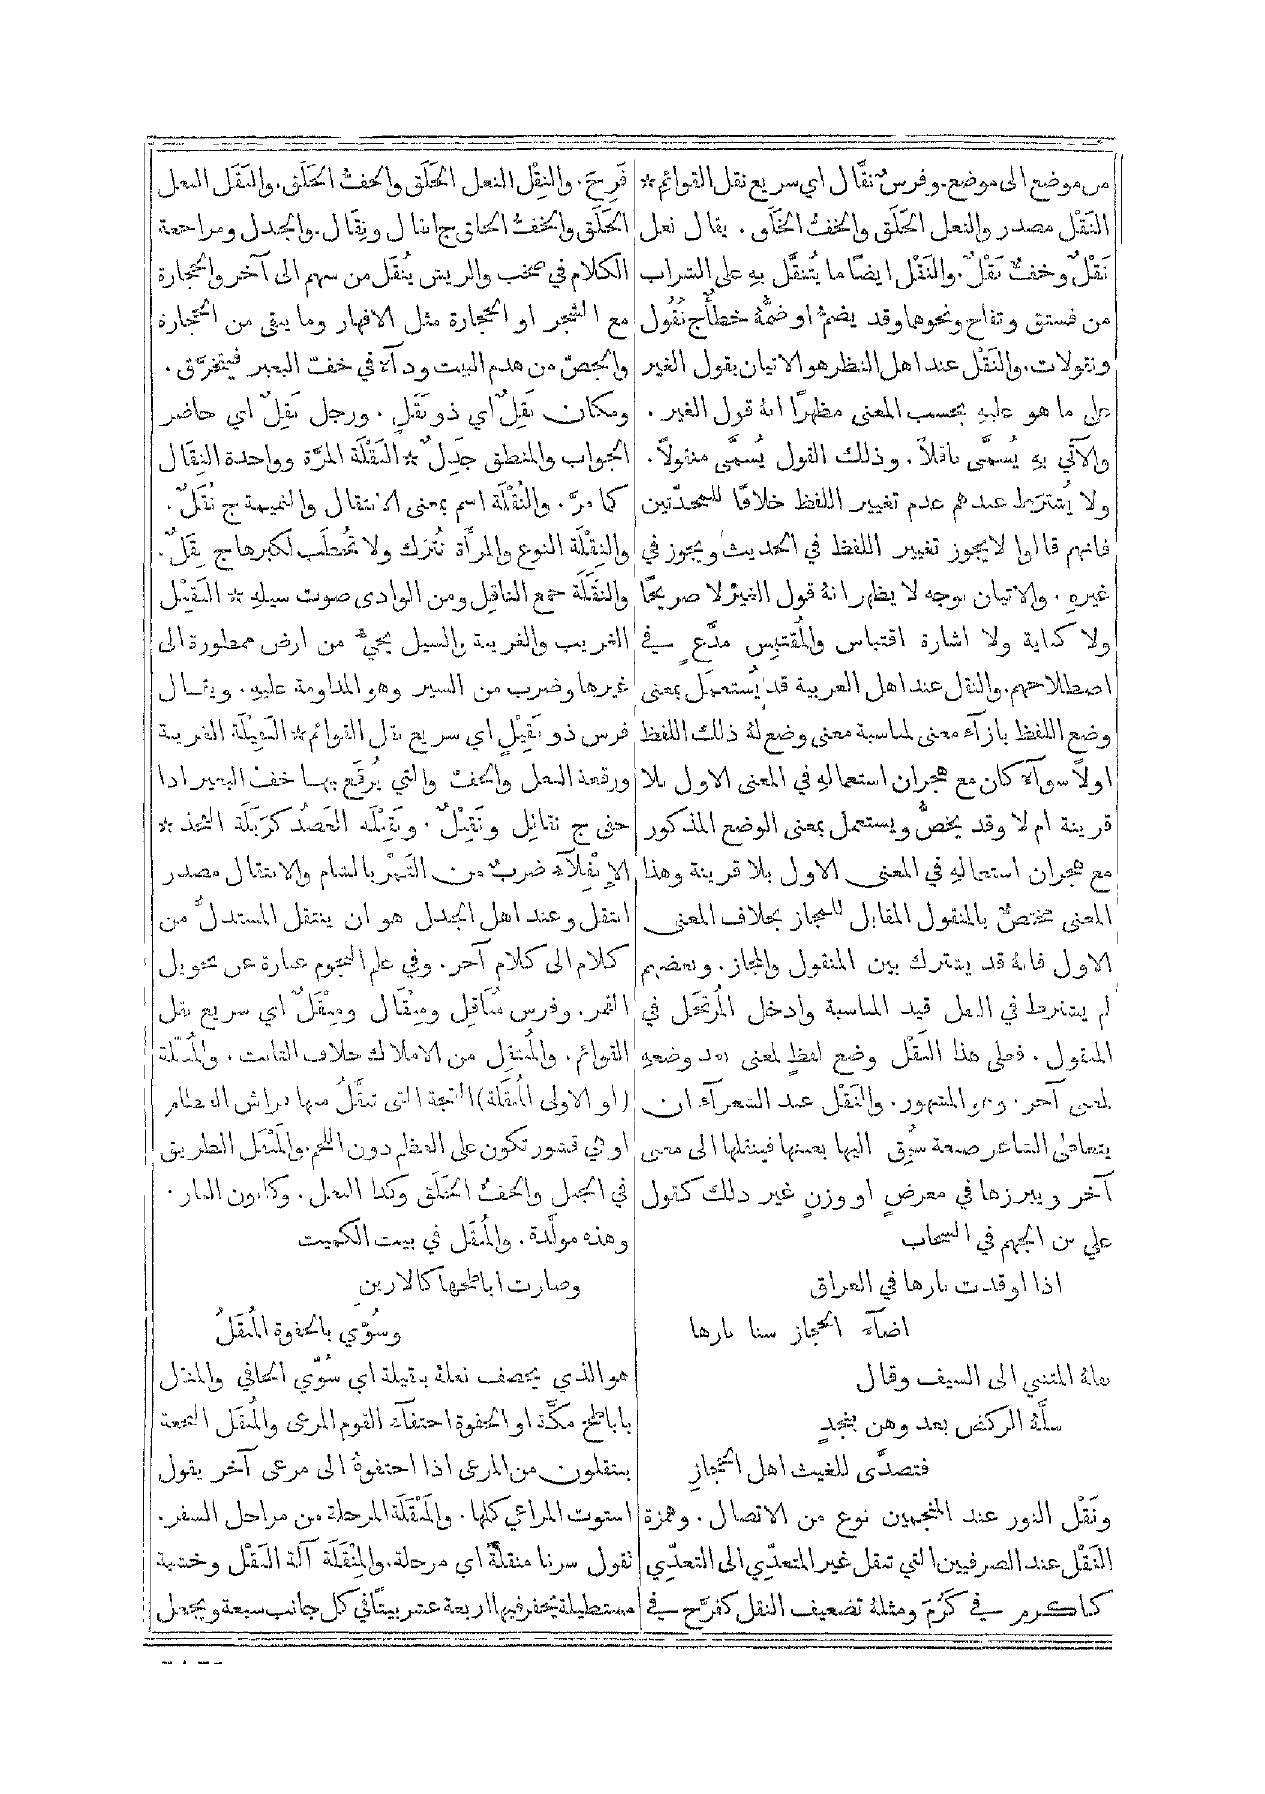 من موضع الى موضع. وفرسٌ نقَّال اي سريع نقل القوائم *
النَقْل مصدر والنعل الخَلَق والخفّ الخَلَق. يقال نعل
نَقْلٌ وخفٌّ نَقْلٌ. والنَقْل ايضًا ما يُتنقَّل بهِ على الشراب
من فستق وتفاح ونحوها وقد يضمُّ او ضمُّهُ خطأٌ ج نُقُول
ونقولات. والنَقْل عند اهل النظر هو الاتيان بقول الغير
على ما هو عليهِ بحسب المعنى مظهرًا انهُ قول الغير.
والآتي بهِ يُسمَّى ناقلاً. وذلك القول يُسمَّى منقولاً.
ولا يُشترَط عندهم عدم تغيير اللفظ خلافًا للمحدّثين
فانهم قالوا لا يجوز تغيير اللفظ في الحديث ويجوز في
غيرهِ. والاتيان بوجه لا يظهر انهُ قول الغير لا صريحًا
ولا كناية ولا اشارة اقتباس والمُقتبِس مدَّعٍ في
اصطلاحهم. والنقل عند اهل العربية قد يُستعمَل بمعنى
وضع اللفظ بازآء معنى لمناسبة معنى وضع لهُ ذلك اللفظ
اولاً سوآء كان مع هجران استعمالهِ في المعنى الاول بلا
قرينة ام لا وقد يخصُّ ويستعمل بمعنى الوضع المذكور
مع هجران استعمالهِ في المعنى الاول بلا قرينة وهذا
المعنى مختصٌّ بالمنقول المقابل للمجاز بخلاف المعنى
الاول فانهُ قد يشترك بين المنقول والمجاز. وبعضهم
لم يشترط في النقل قيد المناسبة وادخل المُرتَجَل في
المنقول. فعلى هذا النَقْل وضع لفظٍ لمعنى بعد وضعهِ
لمعنى آخر. وهو المشهور. والنَقْل عند الشعرآء ان
يتعاطى الشاعر صنعة سُبِق اليها بعينها فينقلها الى معنى
آخر ويبرزها في معرضٍ او وزنٍ غير ذلك كقول
علي بن الجهم في السحاب
اذا اوقدت نارها في العراق
اضآء الحجاز سنا نارها
نقلهُ المتنبي الى السيف وقال
سلَّهُ الركض بعد وهن بنجدٍ
فتصدَّى للغيث اهل الحجازِ
ونَقْل النور عند المنجّمين نوع من الاتصال. وهمزة
النَقْل عند الصرفيين التي تنقل غير المتعدّي الى التعدّي
كاكرم في كَرُمَ ومثلهُ تضعيف النقل كفرَّح في
فَرِحَ. والنِقْل النعل الخَلَق والخفّ الخَلَق. والنَقَل النعل
الخَلَق والخفّ الخلق ج انقال ونِقَال. والجدل ومراجعة
الكلام في صخب والريش يُنقَل من سهم الى آخر والحجارة
مع الشجر او الحجارة مثل الافهار وما يبقى من الحجارة
والجصّ من هدم البيت ودآء في خفّ البعير فيتخرَّق.
ومكان نَقِلٌ اي ذو نَقَلٍ. ورجل نَقِلٌ اي حاضر
الجواب والمنطق جَدِلٌ * النَقْلَة المرَّة وواحدة النِقَال
كما مرَّ. والنُقْلَة اسم بمعنى الانتقال والنميمة ج نُقَلٌ.
والنِقْلَة النوع والمرأَة تُترَك ولا تُخطَب لكبرها ج نِقَلٌ.
والنَقَلَة جمع الناقل ومن الوادى صوت سيلهِ * النَقِيْل
الغريب والغريبة والسيل يجيءُ من ارض ممطورة الى
غيرها وضرب من السير وهو المداومة عليهِ. ويقال
فرس ذو نَقِيْلٍ اي سريع نقل القوائم * النَقِيْلَة الغريبة
ورقعة النعل والخفّ والتي يُرقَع بها خفّ البعير اذا
حفي ج نقائل ونَقِيْلٌ. ونَقِيْلَة العَضُد كرَبَلَة الفخذ *
الاِنْقِلآء ضربٌ من التمر بالشام والانتقال مصدر
انتقل وعند اهل الجدل هو ان ينتقل المستدلُّ من
كلام الى كلام آخر. وفي علم النجوم عبارة عن تحويل
القمر. وفرس مُنَاقِل ومِنْقَال ومِنْقَلٌ اي سريع نقل
القوائم. والمُنتقِل من الاملاك خلاف الثابت. والمُنَقِّلة
(او الاولى المُنَقَّلة) الشجة التى تنقَّلُ منها فراش العظام
او هي قشور تكون على العظم دون اللحم. والمَنْقَل الطريق
في الجبل والخفّ الخَلَق وكذا النعل. وكانون النار.
وهذه مولَّدة. والمُنقَل في بيت الكميت
وصارت اباطحها كالارين
وسُوّي بالحفوة المُنقَلُ
هو الذي يخصف نعلهُ بنقيلة اي سُوّي الحافي والمنتقل
باباطح مكَّة او الحفوة احتفآء القوم المرعى والمُنقَل النجعة
ينتقلون من المرعى اذا احتفوهُ الى مرعى آخر يقول
استوت المراعي كلها. والمَنْقَلَة المرحلة من مراحل السفر.
تقول سرنا منقلةً اي مرحلة. والمِنْقَلَة آلة النَقْل وخشبة
مستطيلة يحفر فيها اربعة عشر بيتًا في كل جانب سبعة ويجعل